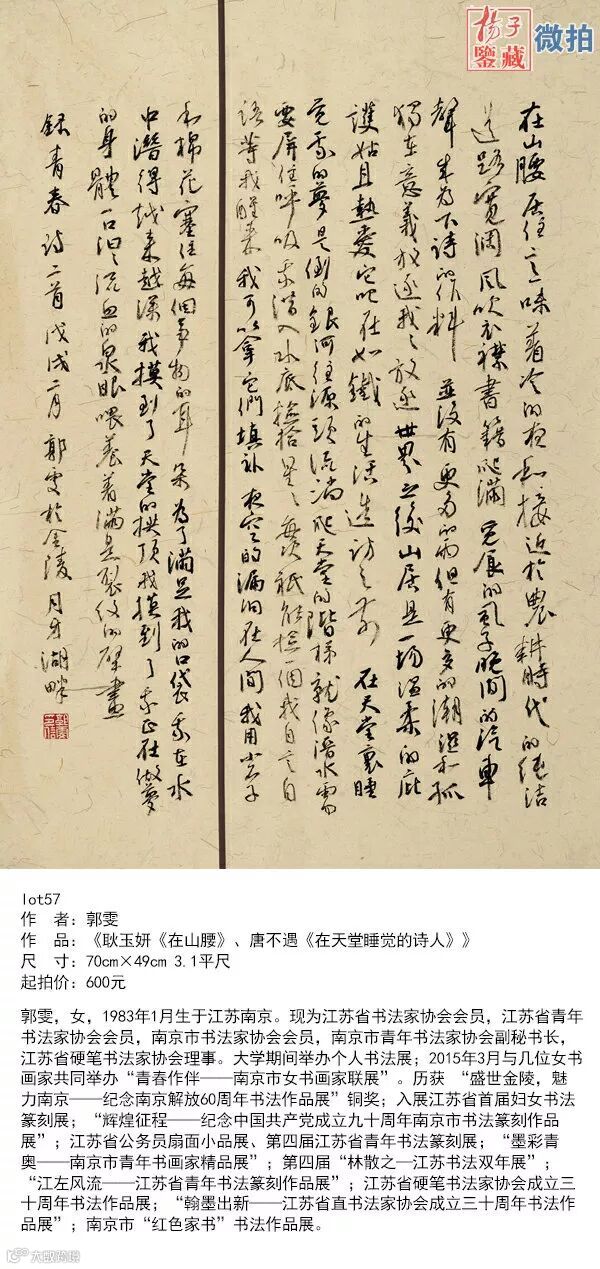 揚子
鑒藏
微拍
在山腰 居住意味着冷的夜和接近於農耕時代的純洁
道路寬闊 風吹衣襟 書籍爬滿 星辰的虱子 晚間的汽車
聲 成為下詩的作料 並沒有更多的雨 但有更多的潮湿和孤
獨 在意義放逐我 我放逐世界之後 山居是一場温柔的庇
護 姑且熱愛它吧 在如鐵的生活造訪之前 在天堂裏睡
覺 我的夢是倒的 銀河往源頭流淌 爬天堂的階梯就像潛水 需
要屏住呼吸 我潛入水底撿拾星星 貝 祇能撿一個 我自言自
語 等我醒来 我可以拿它們填补 夜空的漏洞 在人間 我用
和棉花 塞住每個事物的耳朵 為了滿足我的口袋 我在水
中潛得越来越深 我摸到了天堂的拱頂 我摸到了我正在做夢
的身體 一口汩汩流血的泉眼 喂養着滿是裂纹的壁畫
録青春诗二首 戊戌二月 郭雯於金陵月牙湖畔
lot57
作 者：郭雯
作 品：《耿玉妍《在山腰》、唐不遇《在天堂睡觉的诗人》》
尺 寸：70cm×49cm 3.1平尺
起拍价：600元
郭雯，女，1983年1月生于江苏南京。现为江苏省书法家协会会员，江苏省青年
书法家协会会员，南京市书法家协会会员，南京市青年书法家协会副秘书长，
江苏省硬笔书法家协会理事。大学期间举办个人书法展；2015年3月与几位女书
画家共同举办“青春作伴——南京市女书画家联展”。历获 “盛世金陵，魅
力南京——纪念南京解放60周年书法作品展”铜奖；入展江苏省首届妇女书法
篆刻展；“辉煌征程——纪念中国共产党成立九十周年南京市书法篆刻作品
展”；江苏省公务员扇面小品展、第四届江苏省青年书法篆刻展；“墨彩青
奥——南京市青年书画家精品展”；第四届“林散之—江苏书法双年展”；
“江左风流——江苏省青年书法篆刻作品展”；江苏省硬笔书法家协会成立三
十周年书法作品展；“翰墨出新——江苏省直书法家协会成立三十周年书法作
品展”；南京市“红色家书”书法作品展。